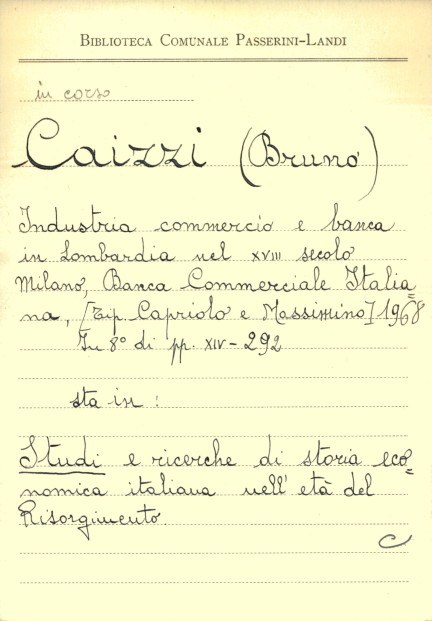 BIBLIOTECA COMUNALE PASSERINI-LANDI
in corso
Caizzi (Bruno)
Industria commercio e banca
in Lombardia nel XVIII secolo
Milano, Banca Commerciale Italia=
na, [Tip. Capriolo e Massimino] 1968
In 8° di pp. XIV-292
sta in:
Studi e ricerche di storia eco=
nomica italiana nell'età del
Risorgimento
C